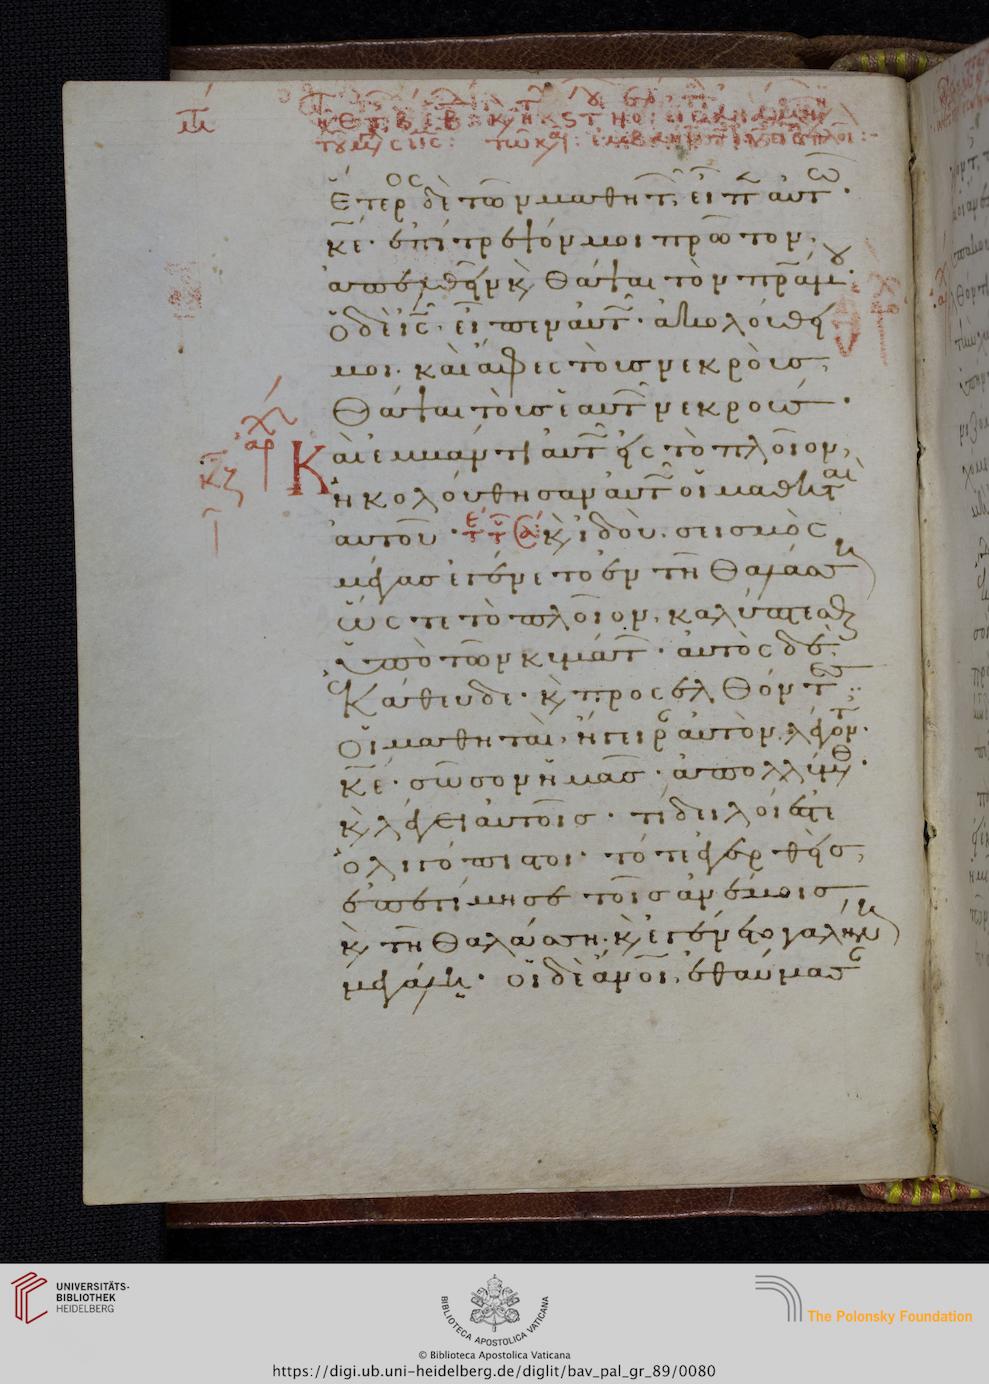 Ἕτερος δὲ τῶν μαθητ. εἶπ αὐτῶ.
κε. ἐπίτρεψόν μοι πρῶτον,
ἀπελθεῖν κ θάψαι τὸν πρα μου.
Ὁ δὲ ις. εἶπεν αὐτ. ἀκολούθει
μοι. καὶ ἄφες τοὺς νεκροὺς,
θάψαι τοὺς ἑαυτ νεκρούς.
Καὶ ἐμβάντι αὐτ εἰς τὸ πλοῖον,
ἠκολούθησαν αὐτ οἱ μαθηταὶ
αὐτοῦ. κ ἰδοὺ. σεισμὸς
μέγας ἐγένετο ἐν τῆ θαλάσση
ὥστε τὸ πλοῖον, καλύπτεσθ
ὑπὸ τῶν κυμάτ. αὐτὸς δὲ,
ἐκάθευδε. κ προσελθόντες
οἱ μαθηταὶ, ἤγειρ αὐτὸν. λέγοντ.
κε. σῶσον ἡμᾶς. ἀπολλύμεθ.
κ λέγει αὐτοῖς. τί δειλοί ἐστε
ὀλιγόπιστοι. τότε ἐγερθεὶς,
ἐπετίμησε τοῖς ἀνέμοις,
κ τῆ θαλάσση. κ ἐγένετο γαλήνη
μεγάλη. οἱ δὲ ἀνοι, ἐθαύμασ
UNIVERSITÄTS-
BIBLIOTHEK
HEIDELBERG
BIBLIOTECA APOSTOLICA VATICANA
The Polonsky Foundation
© Biblioteca Apostolica Vaticana
https://digi.ub.uni-heidelberg.de/diglit/bav_pal_gr_89/0080